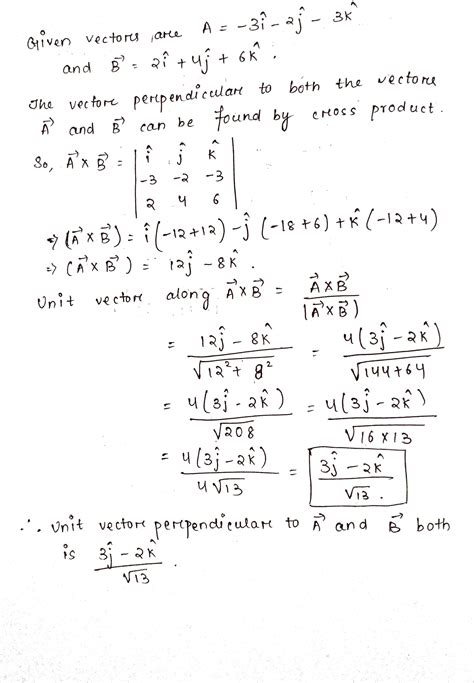 Given vectors are A = -3î - 2ĵ - 3k̂
and B⃗ = 2î + 4ĵ + 6k̂ .
The vector perpendicular to both the vectors
A⃗ and B⃗ can be found by cross product.
So, A⃗ × B⃗ = | î ĵ k̂ |
| -3 -2 -3 |
| 2 4 6 |
⇒ (A⃗ × B⃗) = î(-12+12) - ĵ(-18+6) + k̂(-12+4)
⇒ (A⃗ × B⃗) = 12ĵ - 8k̂ .
Unit vector along A⃗×B⃗ = A⃗×B⃗ / |A⃗×B⃗)
= 12ĵ - 8k̂ / √12² + 8² = 4(3ĵ - 2k̂) / √144+64
= 4(3ĵ - 2k̂) / √208 = 4(3ĵ - 2k̂) / √16×13
= 4(3ĵ - 2k̂) / 4√13 = 3ĵ - 2k̂ / √13 .
∴ Unit vector perpendicular to A⃗ and B⃗ both
is 3ĵ - 2k̂ / √13 .